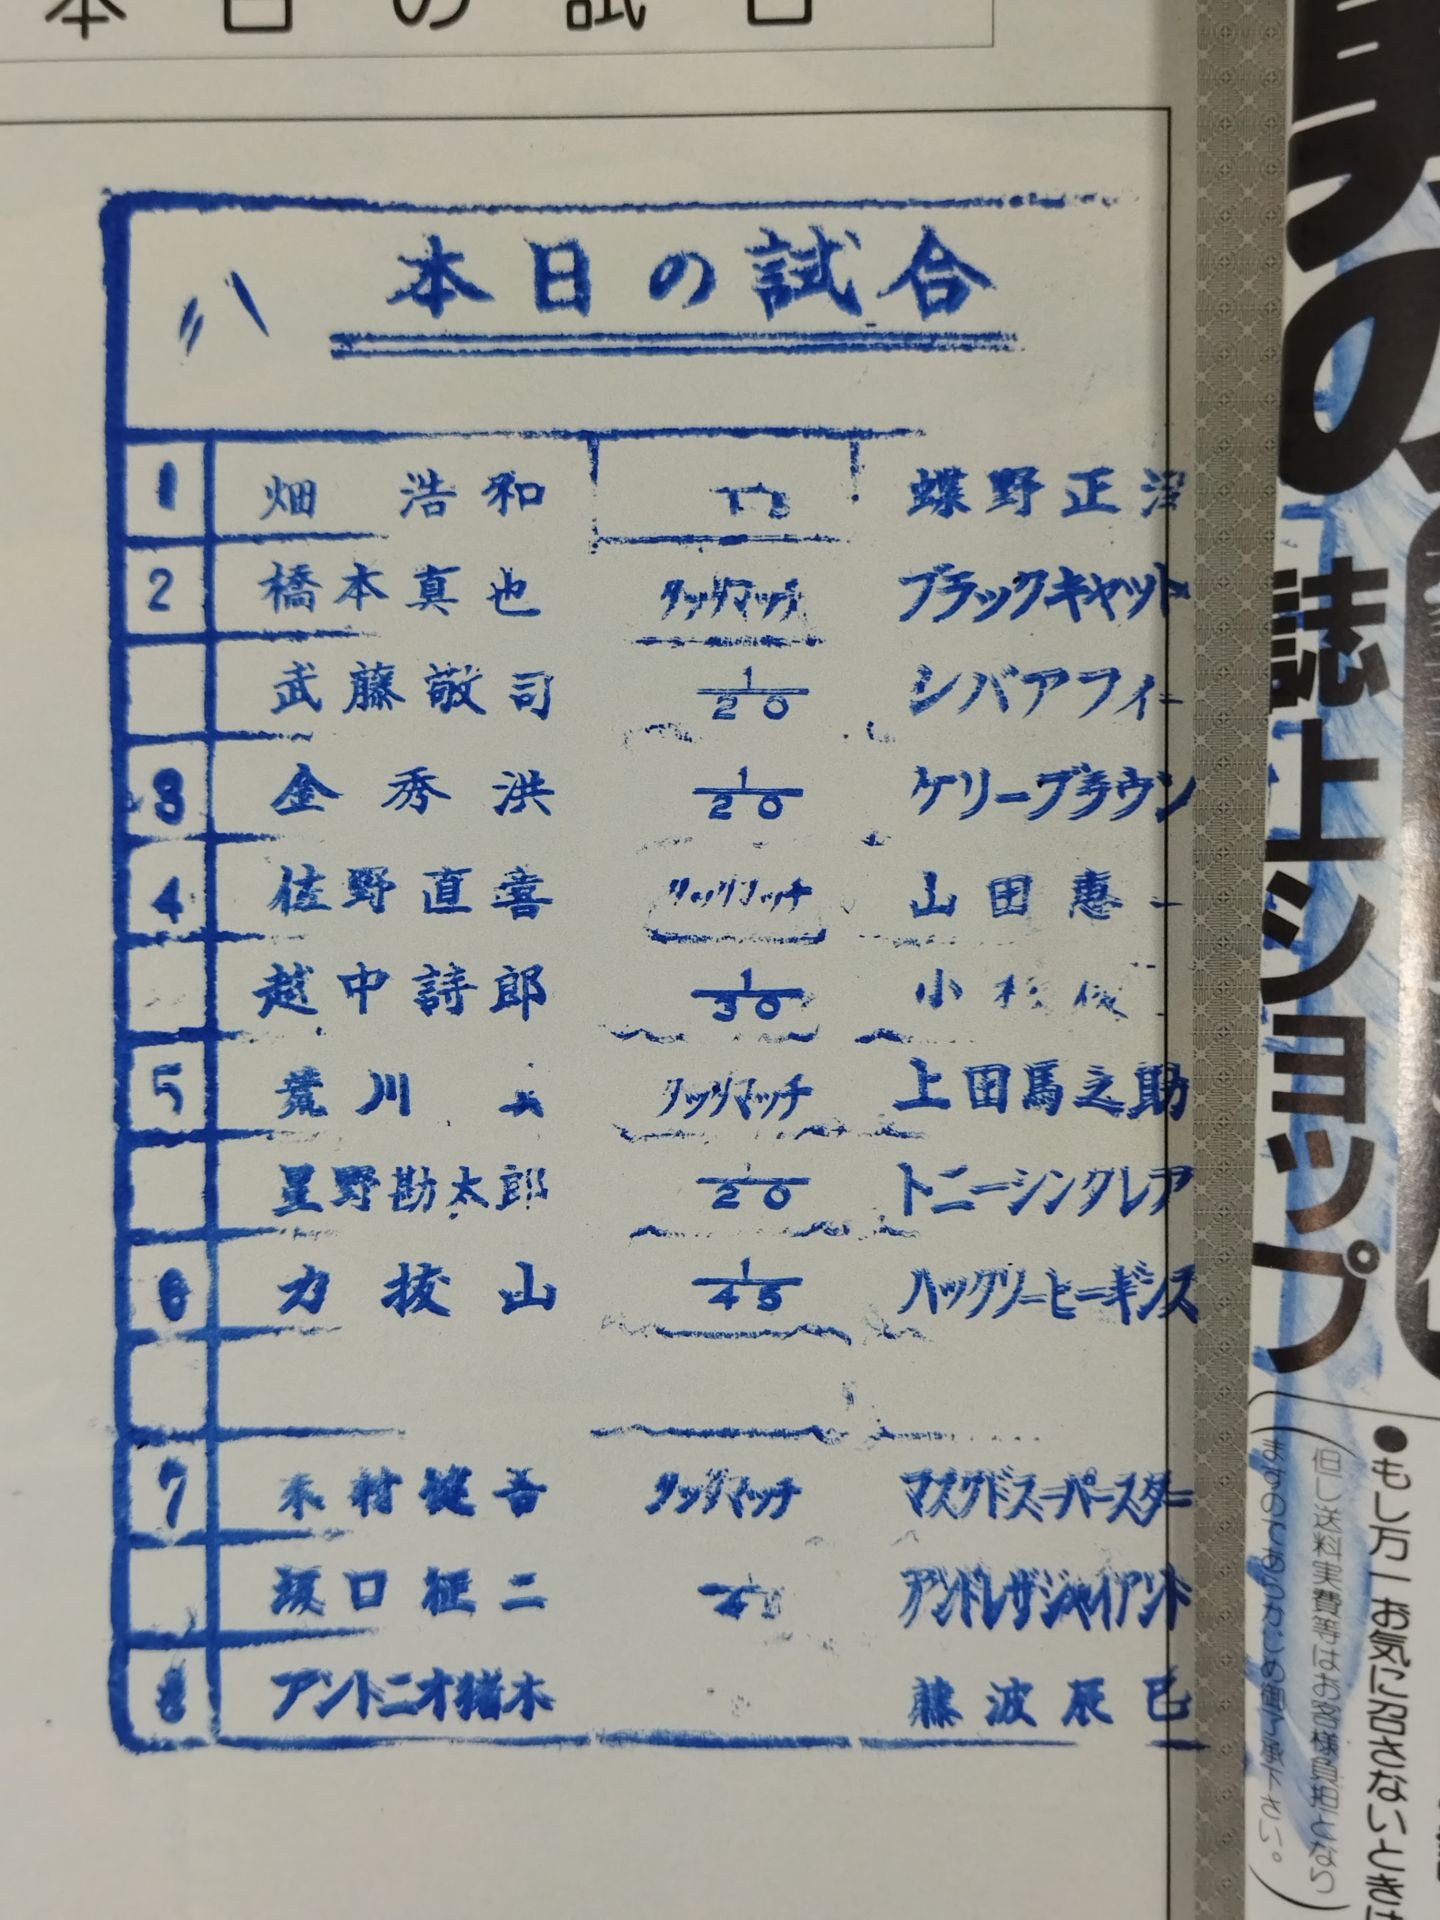 本日の試合
本日の試合
1 畑 浩和 蝶野正洋
2 橋本真也 タッグマッチ ブラックキャット
武藤敬司 1/20 シバアフィー
3 金秀洪 1/20 ケリーブラウン
4 佐野直喜 タッグマッチ 山田恵一
越中詩郎 1/30 小杉俊
5 荒川 タッグマッチ 上田馬之助
星野勘太郎 1/20 トニーシンクレア
6 力抜山 1/45 ハックソーヒーギンス
7 木村健吾 タッグマッチ マスクドスーパースター
坂口征二 アンドレザジャイアント
8 アントニオ猪木 藤波辰巳
の
誌上ショップ
●もし万一お気に召さないときは
(但し送料実費等はお客様負担となり
ますのであらかじめご了承下さい。)